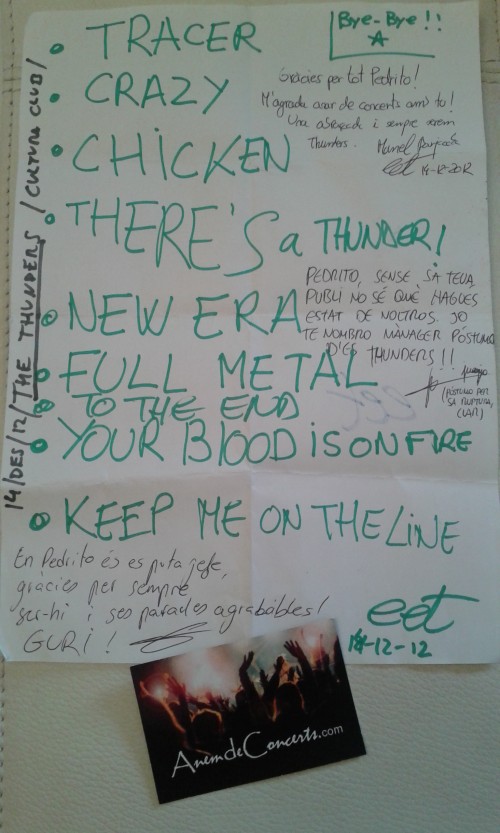 Bye-Bye!!
• TRACER
• CRAZY
• CHICKEN
• THERE'S a THUNDER!
• NEW ERA
• FULL METAL
• TO THE END
• YOUR BLOOD IS ON FIRE
• KEEP ME ON THE LINE
14/DES/12/THE THUNDERS/CULTURA CLUB/
Gràcies per tot Pedrito!
M'agrada anar de concerts amb tu!
Una abraçada i sempre serem
Thunders. Manel
14-12-2012
PEDRITO, SENSE SA TEVA
PUBLI NO SÉ QUÈ HAGUES
ESTAT DE NOLTROS. JO
TE NOMBRO MÀNAGER PÒSTUMO
D'ES THUNDERS!!
(PÒSTUMO PER
SA RUPTURA,
CLAR)
En Pedrito és es puta jefe,
gracies per sempre
ser-hi i ses parades agrabables!
GURI!
eet
14-12-12
AnemdeConcerts.com